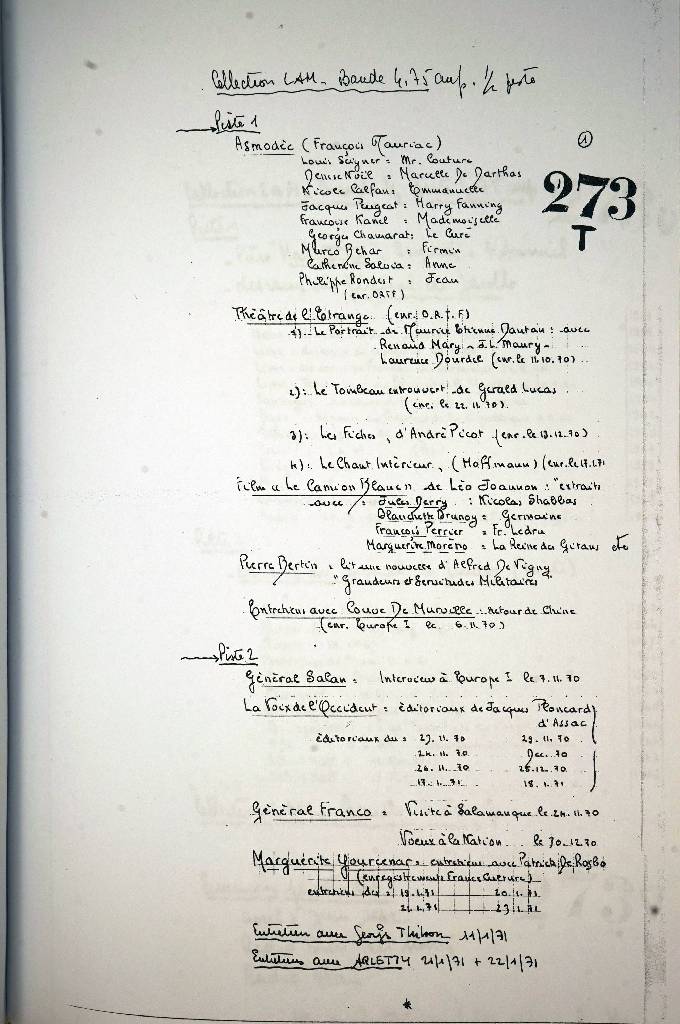 Collection LAM - Bande 4,75 amp. 1/2 piste
Piste 1
①
Asmodée (François Mauriac)
Louis Seigner = Mr. Couture
Denise Noël = Marcelle De Barthas
Nicole Calfan = Emmanuelle
273
T
Jacques = Harry Fanning
Françoise Kanel = Mademoiselle
Georges Chamarat = Le Curé
Marco Behar = Firmin
Catherine Salvia = Anne
Philippe Rondest = Jean
(enr. ORTF)
Théâtre de l'Etrange (enr. O.R.T.F)
1): Le Portrait de Maurice Etienne : avec
Renaud Mary - J.L. Maury -
Laurence Bourdel (enr. le 11.10.70)
2): Le Tombeau entrouvert de Gerald Lucas
(enr. le 22.11.70)
3): Les Fiches, d'André Picot (enr. le 13.12.70)
4): Le Chant Intérieur, (Hoffmann) (enr. le 17.1.71
Film "Le Camion Blanc" de Léo Joannon : "extraits
avec : Jules Berry : Nicolas Shabbas
Blanchette Brunoy = Germaine
François Perrier = Fr. Ledru
Marguerite Moréno = La Reine des Gitans etc
Pierre Bertin = lit une nouvelle d'Alfred De Vigny
"Grandeurs et Servitudes Militaires"
Entretiens avec Couve De Murville : Retour de Chine
(enr. Europe I le 6.11.70)
Piste 2
Général Salan = Interview à Europe I le 7.11.70
La Voix de l'Occident = éditoriaux de Jacques Ploncard
d'Assac
éditoriaux du = 23.11.70 29.11.70
24.11.70 Dec. 70
26.11.70 25.12.70
17.1.71 18.1.71
Général Franco = Visite à Salamanque le 24.11.70
Voeux à la Nation le 30.12.70
Marguerite Yourcenar = entretiens avec Patrick De Rosbo
(enregistrements France Culture)
entretiens des = 19.1.71 20.1.71
21.1.71 23.1.71
Entretien avec Georges Thibon 11/1/71
Entretiens avec ARLETTY 21/1/71 + 22/1/71
*